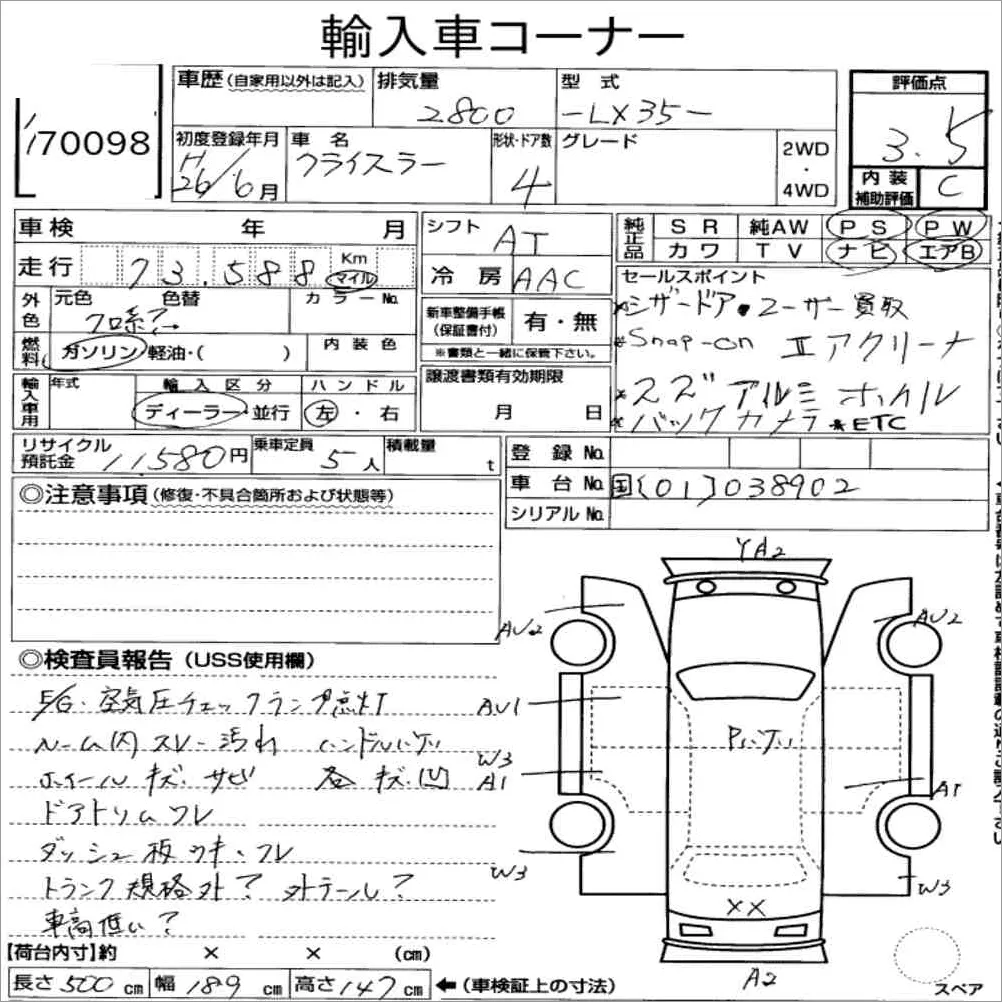 輸入車コーナー
170098
車歴(自家用以外は記入)
排気量
2800
型式
-LX35-
評価点
3.5
初度登録年月
H26/6月
車名
クライスラー
形状・ドア数
4
グレード
2WD
・
4WD
内装
補助評価
C
車検 年 月
走行 73,588 Km マイル
シフト
AT
冷房 AAC
純正品
SR 純AW PS PW
カワ TV ナビ エアB
外色
元色 色替
クロ系
カラーNo.
燃料
ガソリン 軽油・( )
内装色
新車整備手帳
(保証書付)
有・無
※書類と一緒に保管下さい。
セールスポイント
*シザードア・ユーザー買取
*Snap-on エアクリーナ
*スズ アルミホイル
*バックカメラ *ETC
輸入車用
年式
輸入区分
ディーラー・並行
ハンドル
左・右
譲渡書類有効期限
月 日
リサイクル
預託金
11,580円
乗車定員
5人
積載量
t
登録No.
車台No. 国[01]038902
シリアルNo.
◎注意事項(修復・不具合箇所および状態等)
◎検査員報告(USS使用欄)
E/G・空気圧チェックランプ点灯
ルーム内スレ・汚れ ハンドルハゲ
ホイールキズ・サビ 各キズ・凹
ドアトリムワレ
ダッシュ板ウキ・ワレ
トランク規格外? 外テール?
車高低い?
YA2
AU2
AU2
AU1
W3
A1
Pハゲ
A1
W3
W3
XX
A2
スペア
【荷台内寸】約 × × (cm)
長さ500cm 幅189cm 高さ147cm ←(車検証上の寸法)